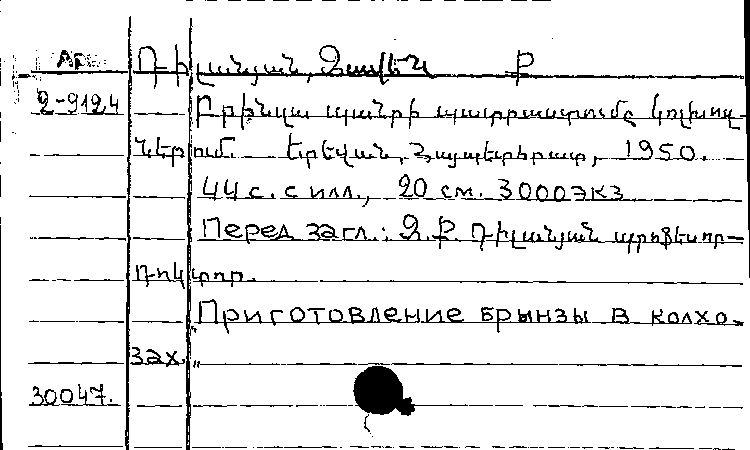 Арм. Դիլանյան, Զավեն Ք
2-9124 Բրինզա պանրի պատրաստումը կոլխոզ-
ներում. Երեվան, Հայպետհրատ, 1950.
44 с. с илл., 20 см. 3000экз
Перед загл.: Զ.Ք. Դիլանյան պրոֆեսոր-
դոկտոր.
„Приготовление брынзы в колхо-
зах.„
30047.